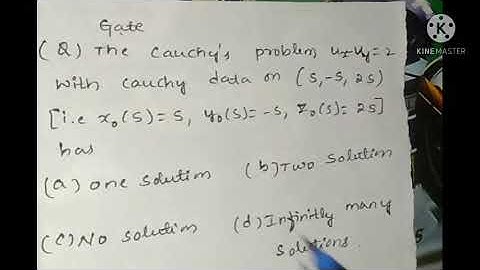 Gate
(Q) The Cauchy's problem uₓuᵧ=2
with Cauchy data on (s,-s, 2s)
[i.e x₀(s)=s, y₀(s)=-s, z₀(s)=2s]
has
(a) one solution (b) Two solution
(c) No solution (d) Infinitly many
solutions.
K
KINEMASTER